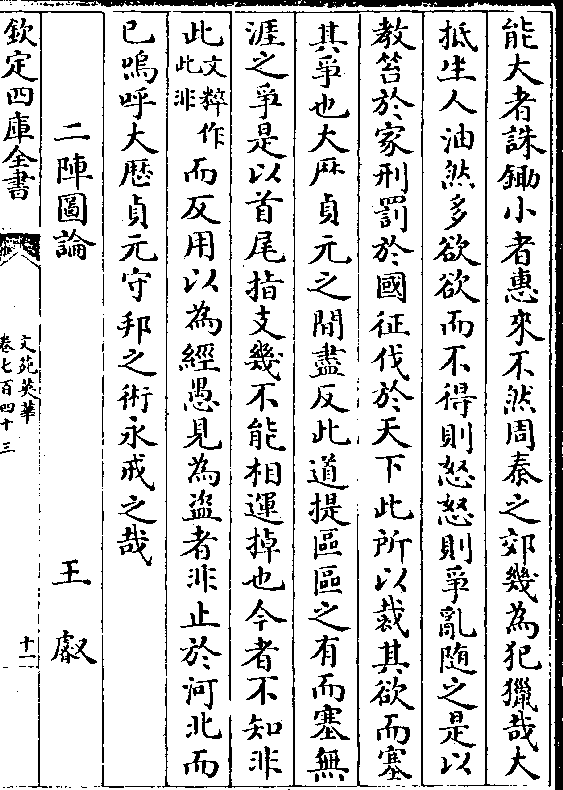 能大者誅鋤小者惠來不然周秦之郊幾為犯獵哉大
抵生人油然多欲欲而不得則怒怒則爭亂隨之是以
教笞於家刑罰於國征伐於天下此所以裁其欲而塞
其爭也大厯貞元之間盡反此道提區區之有而塞無
涯之爭是以首尾指支幾不能相運掉也今者不知非
此文粹作此非而反用以為經愚見為盜者非止於河北而
已嗚呼大歴貞元守邦之術永戒之哉
二陣圖論 王叡
欽定四庫全書
文苑英華
卷七百四十三
十一